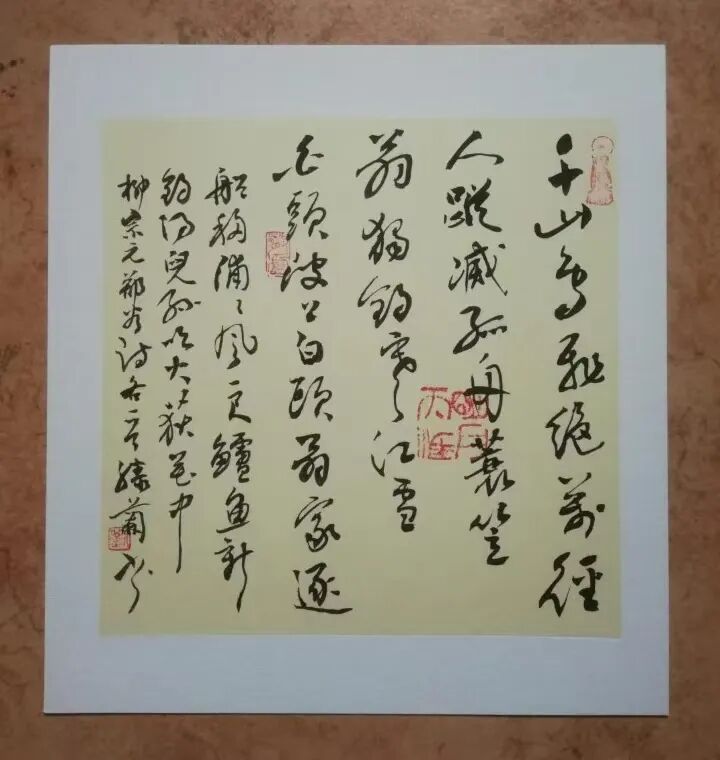 千山鳥飛絕萬徑
人蹤滅孤舟蓑笠
翁獨釣寒江雪
白頭波上白頭翁家逐
船移浦〻風一尺鱸魚新
釣得兒孫吹火荻花中
柳宗元鄭谷詩各一首蘭书